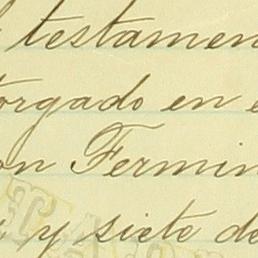 l testamen
torgado en e
on Fermin
, y siete de